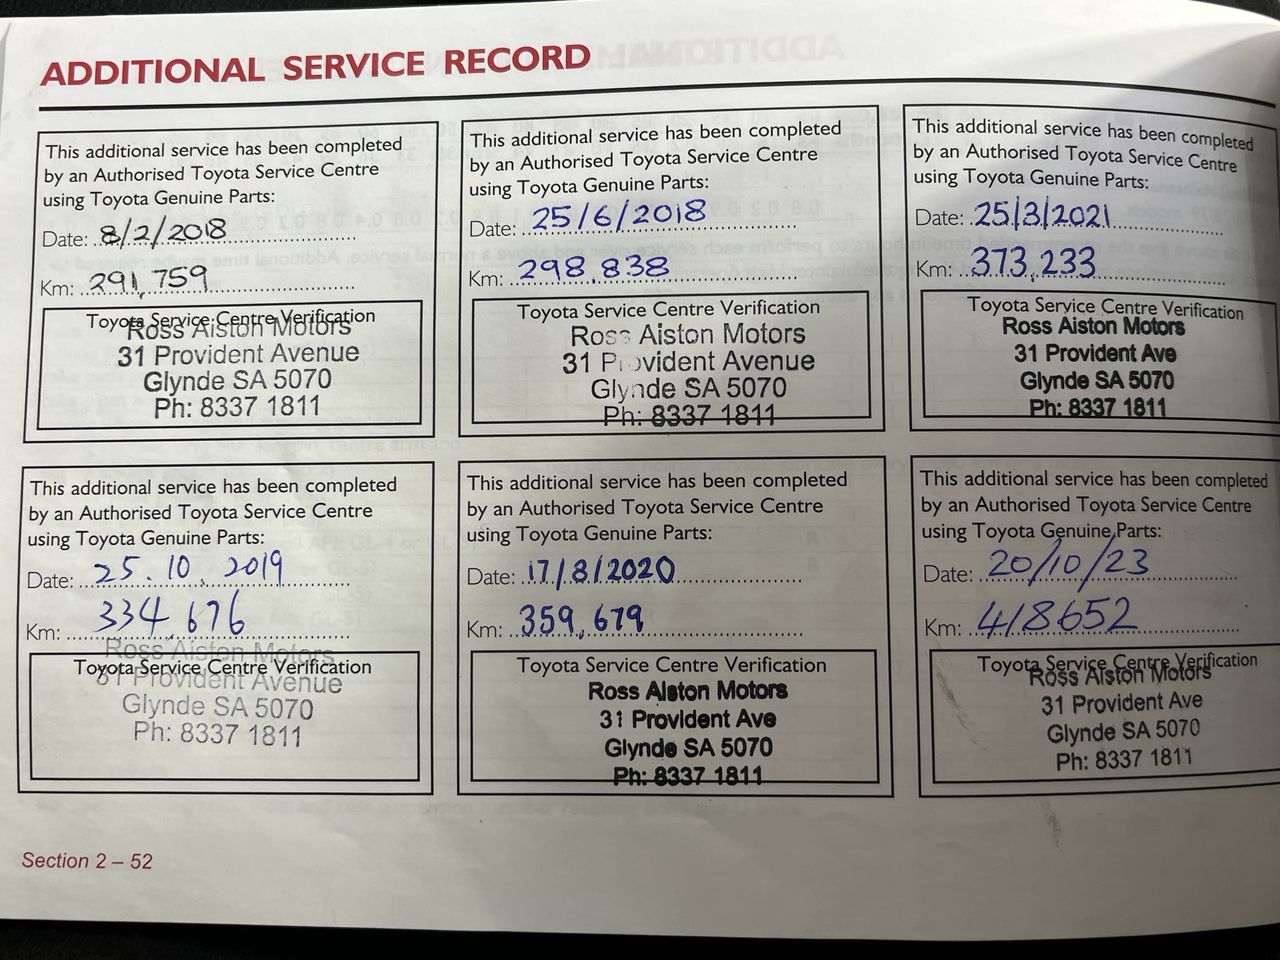 ADDITIONAL SERVICE RECORD
This additional service has been completed
by an Authorised Toyota Service Centre
using Toyota Genuine Parts:
Date: 8/2/2018
Km: 291,759
Toyota Service Centre Verification
Ross Aiston Motors
31 Provident Avenue
Glynde SA 5070
Ph: 8337 1811
This additional service has been completed
by an Authorised Toyota Service Centre
using Toyota Genuine Parts:
Date: 25/6/2018
Km: 298,838
Toyota Service Centre Verification
Ross Aiston Motors
31 Provident Avenue
Glynde SA 5070
Ph: 8337 1811
This additional service has been completed
by an Authorised Toyota Service Centre
using Toyota Genuine Parts:
Date: 25/3/2021
Km: 373,233
Toyota Service Centre Verification
Ross Aiston Motors
31 Provident Ave
Glynde SA 5070
Ph: 8337 1811
This additional service has been completed
by an Authorised Toyota Service Centre
using Toyota Genuine Parts:
Date: 25.10.2019
Km: 334,676
Toyota Service Centre Verification
Ross Aiston Motors
31 Provident Avenue
Glynde SA 5070
Ph: 8337 1811
This additional service has been completed
by an Authorised Toyota Service Centre
using Toyota Genuine Parts:
Date: 17/8/2020
Km: 359,679
Toyota Service Centre Verification
Ross Aiston Motors
31 Provident Ave
Glynde SA 5070
Ph: 8337 1811
This additional service has been completed
by an Authorised Toyota Service Centre
using Toyota Genuine Parts:
Date: 20/10/23
Km: 418652
Toyota Service Centre Verification
Ross Aiston Motors
31 Provident Ave
Glynde SA 5070
Ph: 8337 1811
Section 2 – 52